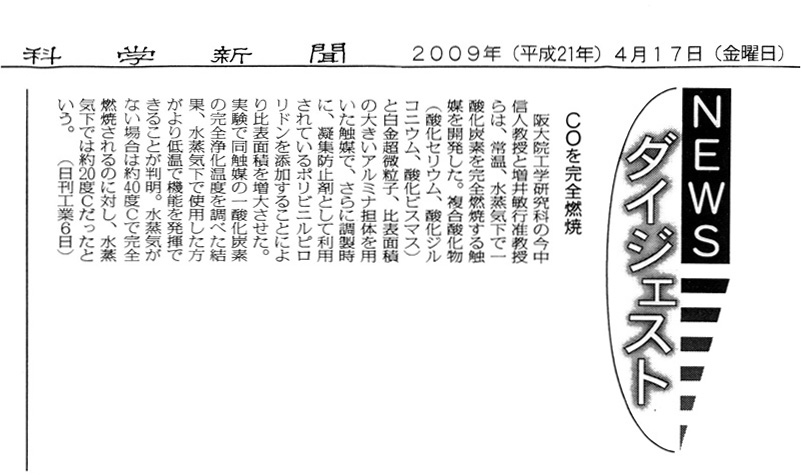 科学新聞
2009年(平成21年)4月17日(金曜日)
NEWS
ダイジェスト
COを完全燃焼
阪大院工学研究科の今中
信人教授と増井敏行准教授
らは、常温、水蒸気下で一
酸化炭素を完全燃焼する触
媒を開発した。複合酸化物
(酸化セリウム、酸化ジル
コニウム、酸化ビスマス)
と白金超微粒子、比表面積
の大きいアルミナ担体を用
いた触媒で、さらに調製時
に、凝集防止剤として利用
されているポリビニルピロ
リドンを添加することによ
り比表面積を増大させた。
実験で同触媒の一酸化炭素
の完全浄化温度を調べた結
果、水蒸気下で使用した方
がより低温で機能を発揮で
きることが判明。水蒸気が
ない場合は約40度Cで完全
燃焼されるのに対し、水蒸
気下では約20度Cだったと
いう。 (日刊工業6日)